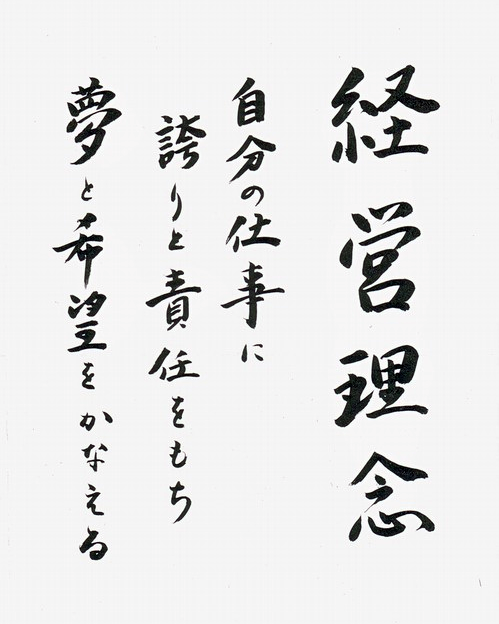 経営理念
自分の仕事に
誇りと責任をもち
夢と希望をかなえる